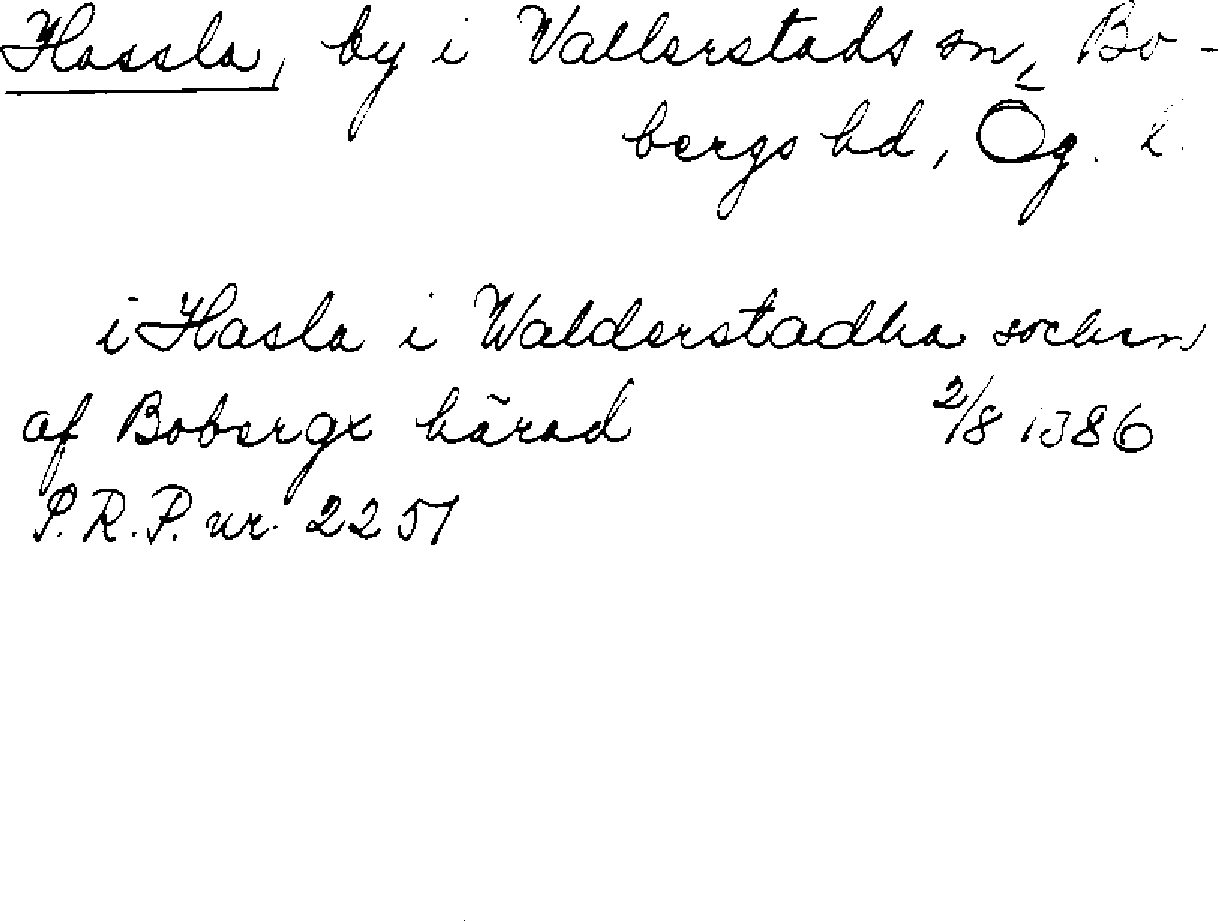 Hassla, by i Vallerstads sn, Bo-
bergs hd, Ög. l.
i Hasla i Walderstadha sochn
af Bobergx härad 2/8 1386
P.R.P. nr. 2251